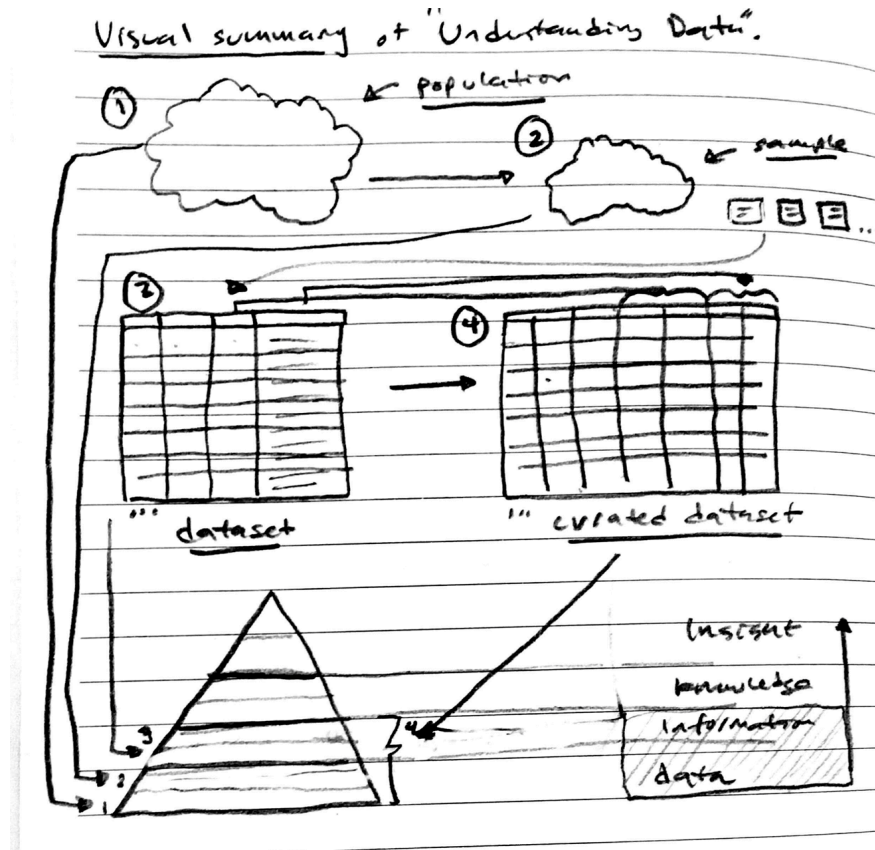 Visual summary of "Understanding Data".
1
population
2
sample
...
3
4
...
dataset
...
curated dataset
Insight
knowledge
3
4
information
2
data
1